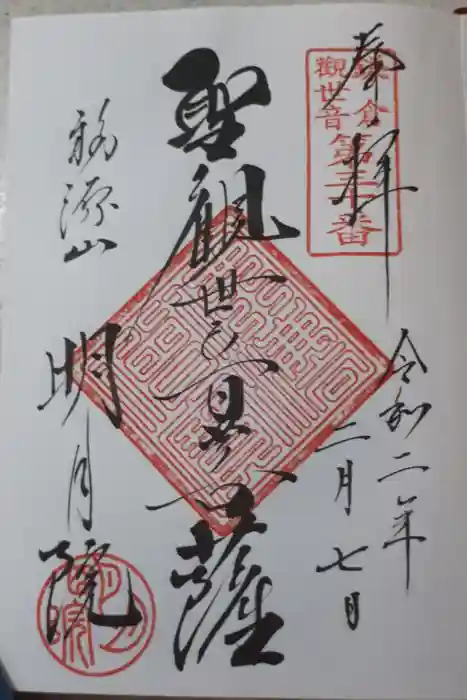 奉拝
鎌倉
觀世音
第三十番
令和二年
二月七日
聖觀世音菩薩
福源山
明月院